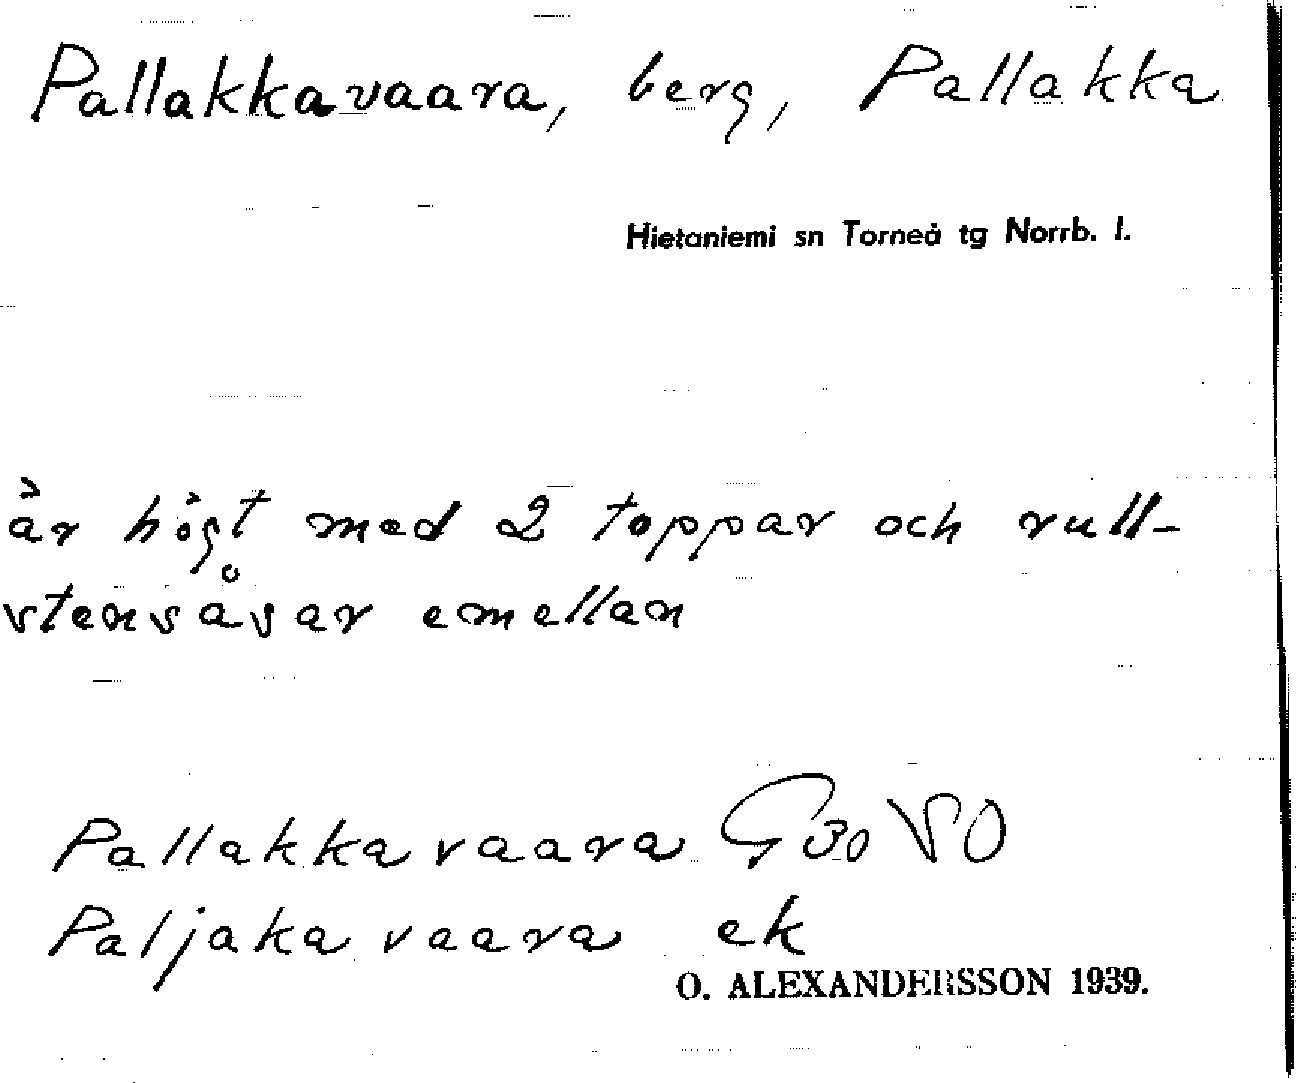 Pallakkavaara, berg, Pallakka
Hietaniemi sn Torneå tg Norrb. l.
är högt med 2 toppar och rull-
stensåsar emellan
Pallakkavaara G 30 VSO
Paljakavaara ek
O. ALEXANDERSSON 1939.